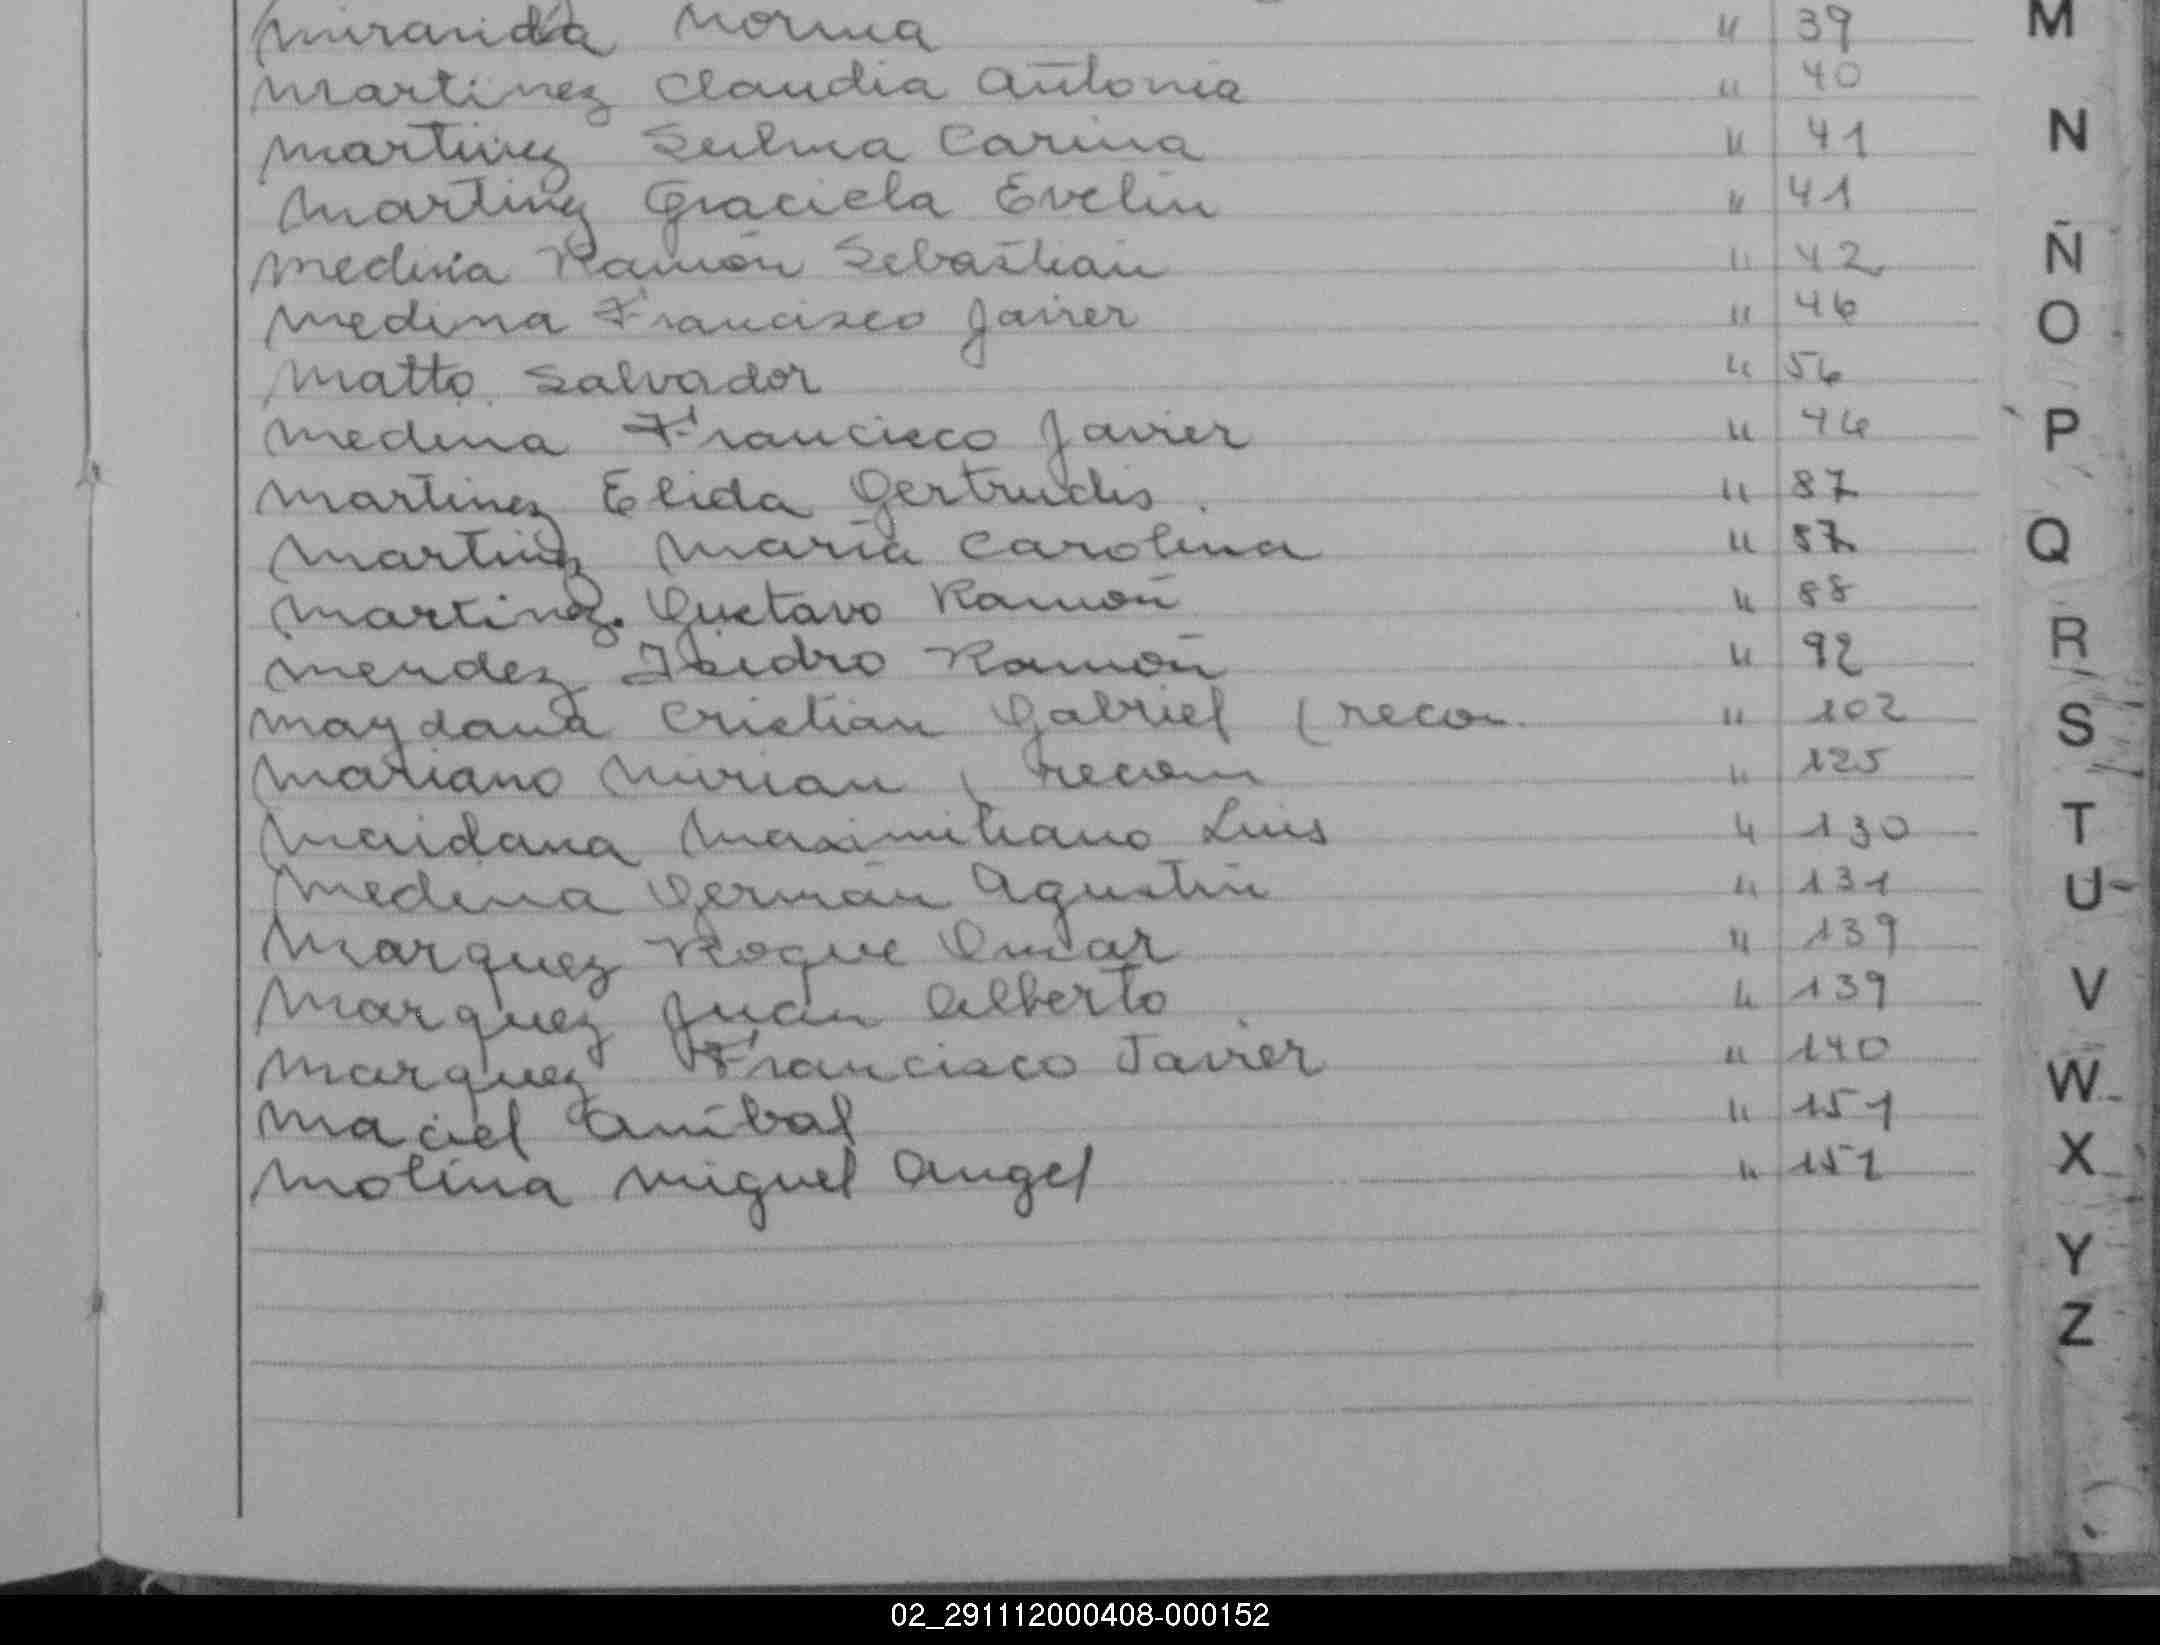 Miranda Norma " 39 M
Martinez Claudia Antonia " 40
Martinez Sulma Carina " 41 N
Martinez Graciela Evelin " 41
Medina Ramón Sebastian " 42 Ñ
Medina Francisco Javier " 46 O
Matto Salvador " 56
Medina Francisco Javier " 46 P
Martinez Elida Gertrudis " 87
Martinez Maria Carolina " 87 Q
Martinez Gustavo Ramón " 88
Mendez Isidro Ramón " 92 R
Maydana Cristian Gabriel (recon. " 102 S
Mariano Mirian ( recon " 125
Maidana Maximiliano Luis " 130 T
Medina Germán Agustin " 131 U
Marquez Roque Omar " 139
Marquez Juan Alberto " 139 V
Marquez Francisco Javier " 140 W
Maciel Anibal " 151
Molina Miguel Angel " 152 X
Y
Z
02_291112000408-000152